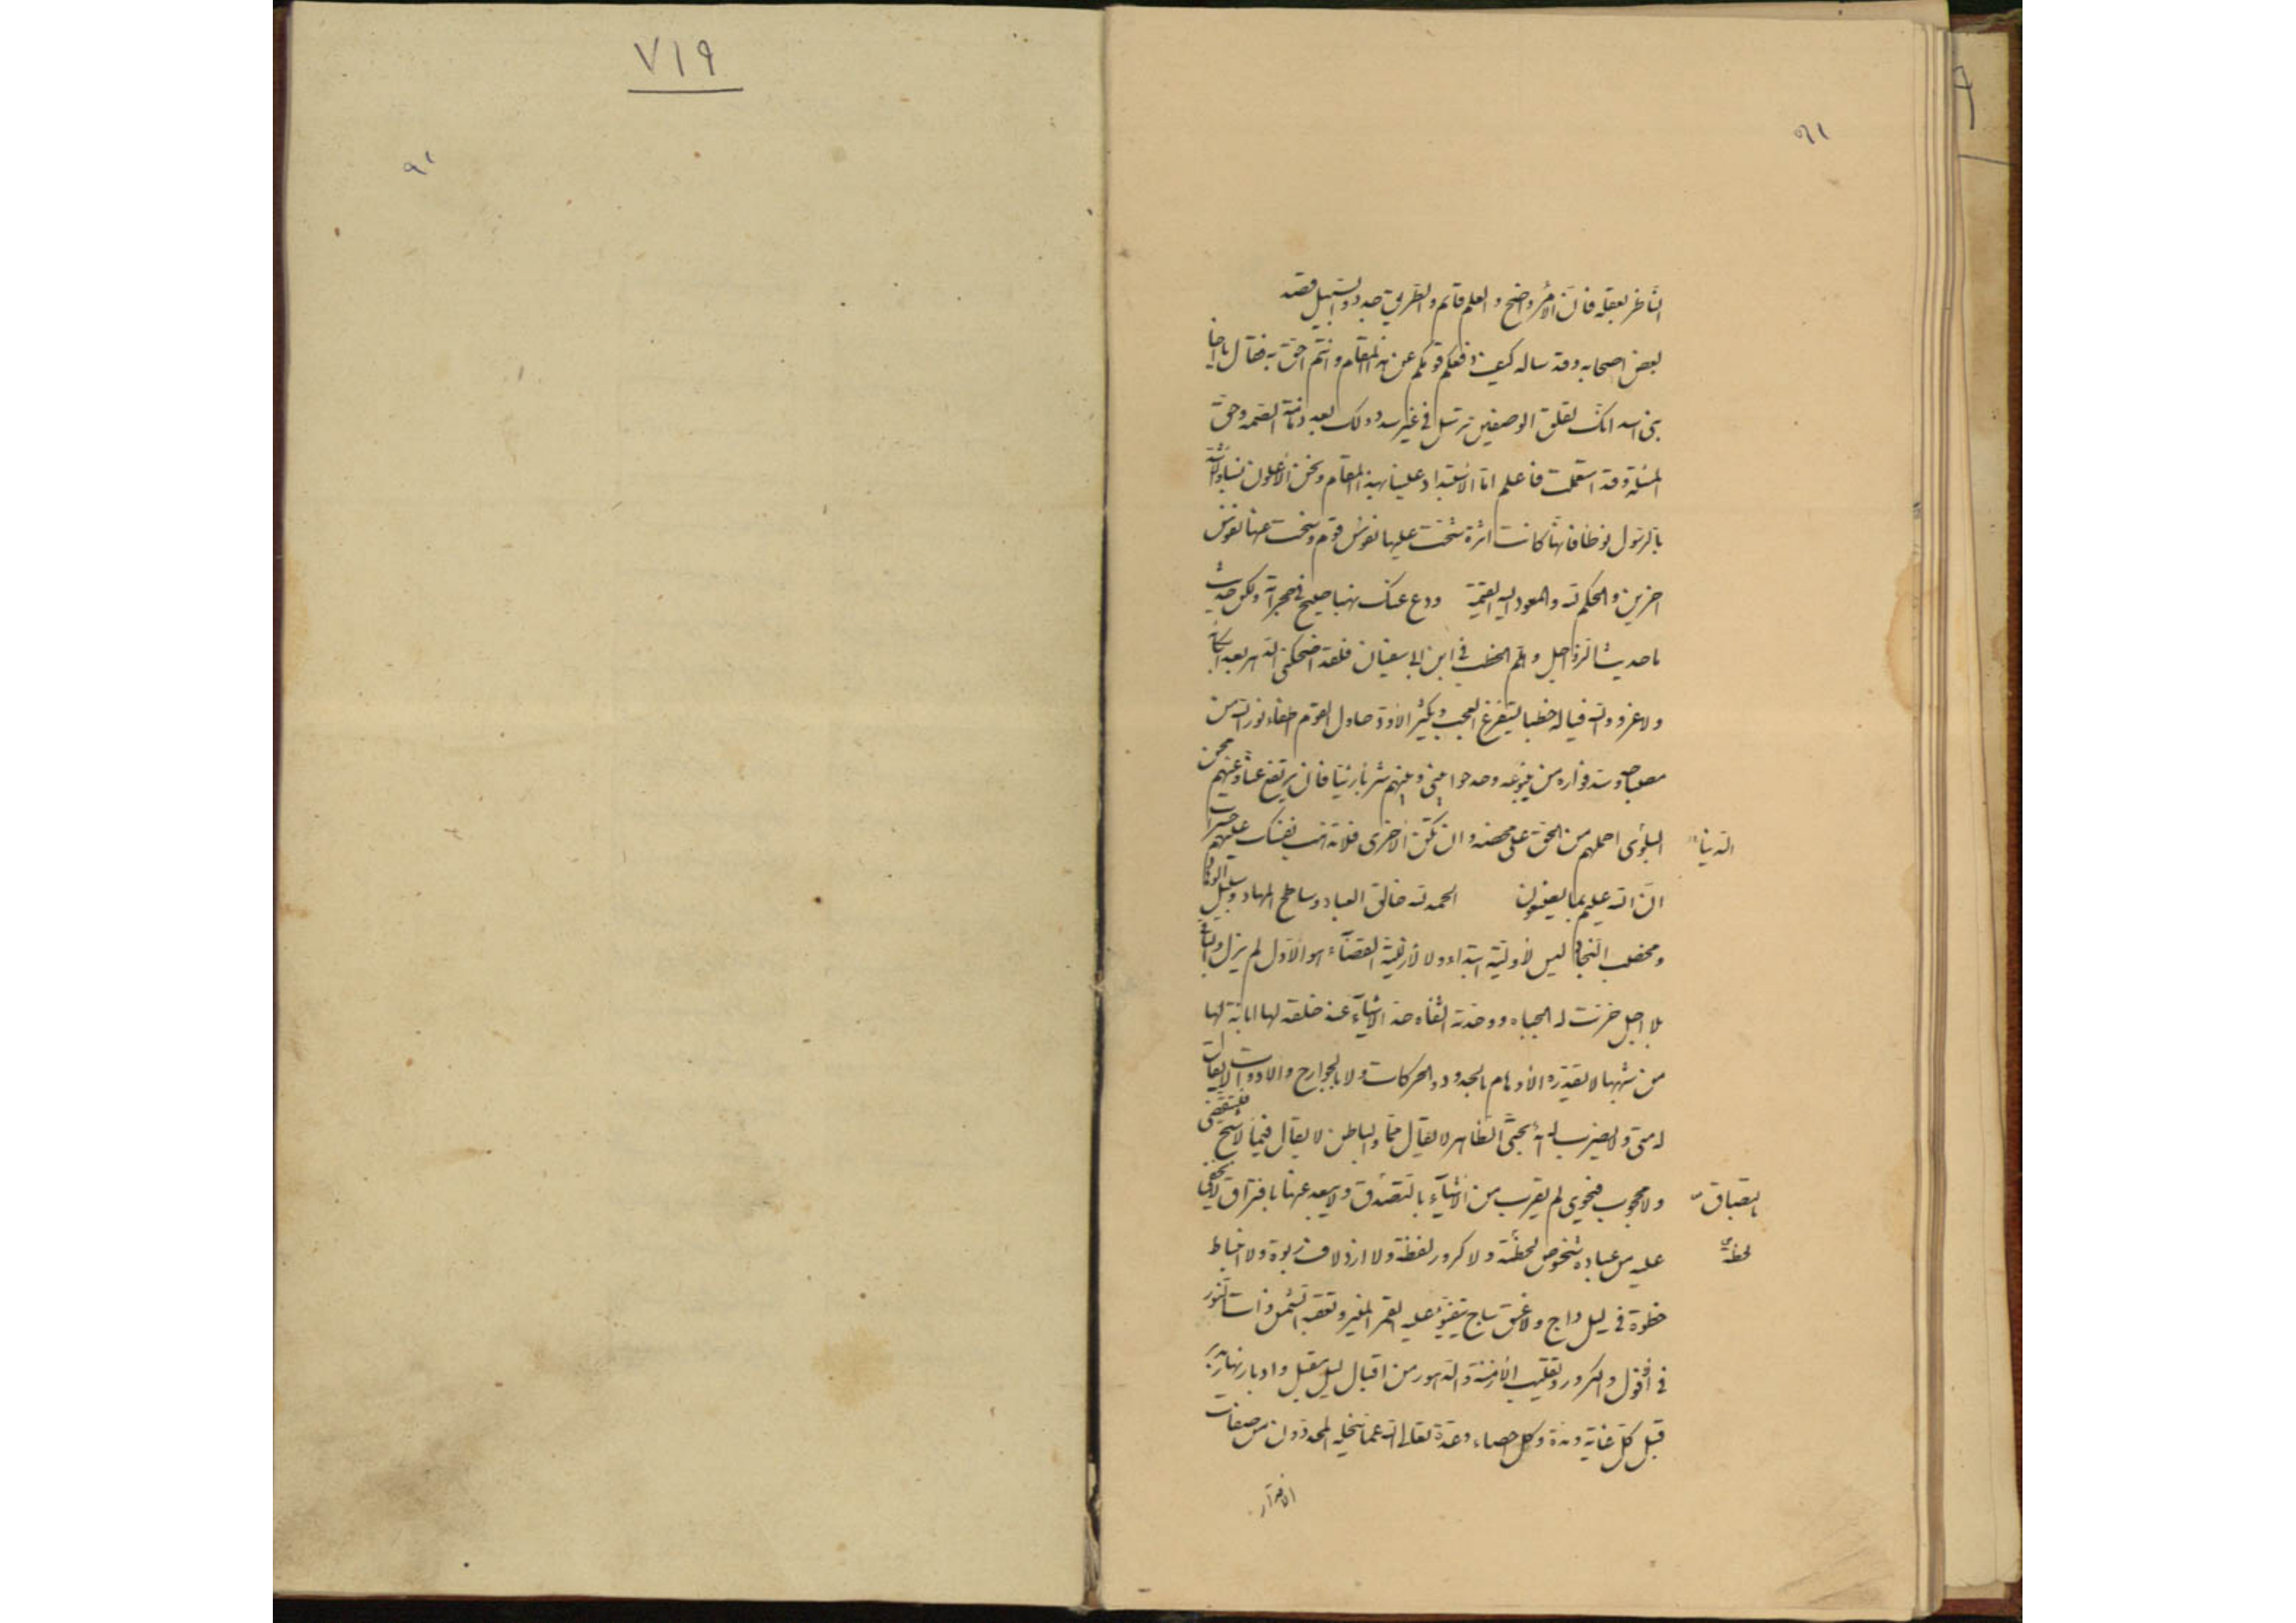 ٧١٩
الناظر بعقله فان الامر واضح والعلم قائم والطريق جدد والسبيل قصد
بعض اصحابه وقد ساله كيف دفعكم قومكم عن هذا المقام وانتم احق به فقال يا اخا
بنى اسد انك لقلق الوضين ترسل فى غير سدد ولك بعد ذمامة الصهر وحق
المسئلة وقد استعلمت فاعلم اما الاستبداد علينا بهذا المقام ونحن الاعلون نسبا والاشد
بالرسول نوطا فانها كانت اثرة شحت عليها نفوس قوم وسخت عنها نفوس
اخرين والحكم لله والمعود اليه القيمة ودع عنك نهبا صيح فى حجراته ولكن حديث
ما حديث الرواحل وهلم الخطب فى ابن ابى سفيان فلقد اضحكنى الدهر بعد ابكائه
ولا غرو والله فيا له خطبا يستفرغ العجب ويكثر الاود حاول القوم اطفاء نور الله من
مصباحه وسد فواره من ينبوعه وجدحوا بينى وبينهم شربا وبيئا فان يرتفع عنا وعنهم محن
البلوى احملهم من الحق على محضه وان تكن الاخرى فلا تذهب نفسك عليهم حسرات
الدنيا
ان الله عليم بما يصنعون الحمد لله خالق العباد وساطح المهاد ومسيل الوهاد
ومخصب النجاد ليس لاوليته ابتداء ولا لازليته انقضاء هو الاول لم يزل والباقى
بلا اجل خرت له الجباه ووحدته الشفاه حد الاشياء عند خلقه لها ابانة لها
من شبهها لا تقدره الاوهام بالحدود والحركات ولا بالجوارح والادوات لا يقال
له متى ولا يضرب له امد بحتى الظاهر لا يقال مما والباطن لا يقال فيما لا شبح فيتقضى
ولا محجوب فيحوى لم يقرب من الاشياء بالتصدق ولم يبعد عنها بافتراق لا يخفى
بالتصاق
عليه من عباده شخوص لحظة ولا كرور لفظة ولا ازدلاف ربوة ولا انبساط
لحظة
خطوة فى ليل داج ولا غسق ساج يتفيؤ عليه القمر المنير وتعقبه الشمس ذات النور
فى الافول والكرور وتقليب الازمنة والدهور من اقبال ليل مقبل وادبار نهار مدبر
قبل كل غاية ومدة وكل احصاء وعدة تعالى الله عما ينحله المحددون من صفات
الاقدار